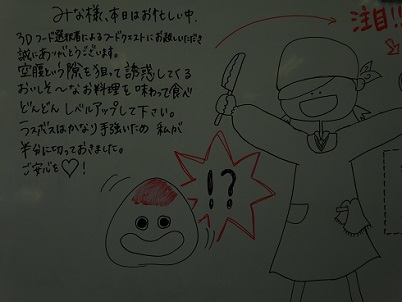 みな様、本日はお忙しい中、
3Dフード選択者によるフードクエストにお越しいただき
誠にありがとうございます。
空腹という隙を狙って誘惑してくる
おいしそ〜なお料理を味わって食べ
どんどんレベルアップして下さい。
ラスボスはかなり手強いため 私が
半分に切っておきました。
ご安心を♡!
注目!!
!?